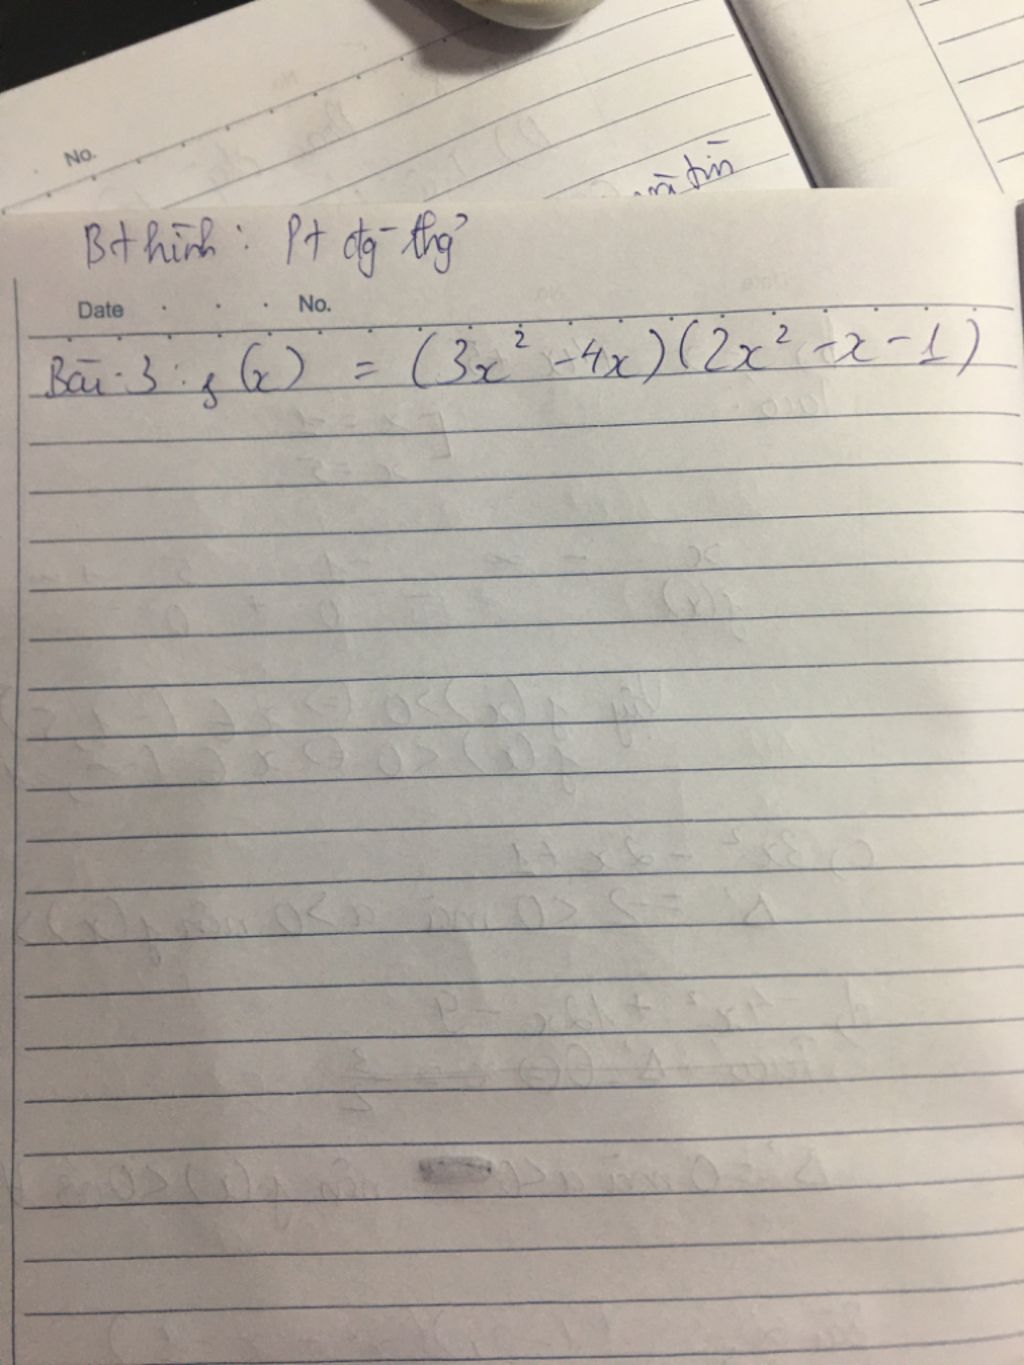 No.
tìn
Bt hình : Pt đg thg
Date . . . No.
Bài 3 : f(x) = (3x² - 4x)(2x² - x - 1)